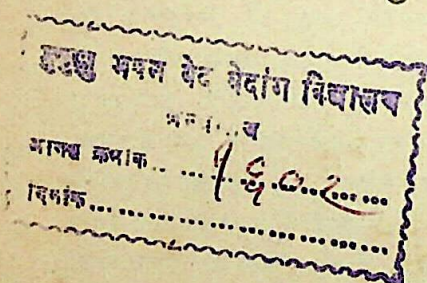 मुमुक्षु भवन वेद वेदांग विद्यालय
आगत क्रमांक.. ....१६०२......
दिनांक..............................